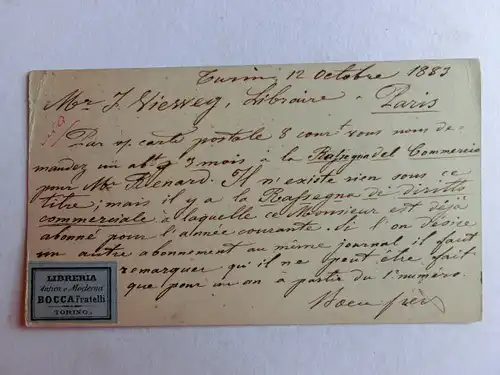 Turin, 12 Octobre 1883
Mr. J. Vieweg, Libraire à Paris
Par v/. carte postale 8 court. vous nous de-
mandez un abt. de 3 mois à la Rassegna del Commercio
pour Mr. Renard. Il n'existe rien sous ce
titre; mais il y a la Rassegna di diritto
commerciale à laquelle ce Monsieur est déjà
abonné pour l'année courante. Si l'on désire
un autre abonnement au même journal il faut
remarquer qu'il ne peut être fait
que pour un an à partir du 1r. numéro.
Bocca frères
LIBRERIA
Antica e Moderna
BOCCA Fratelli
TORINO.